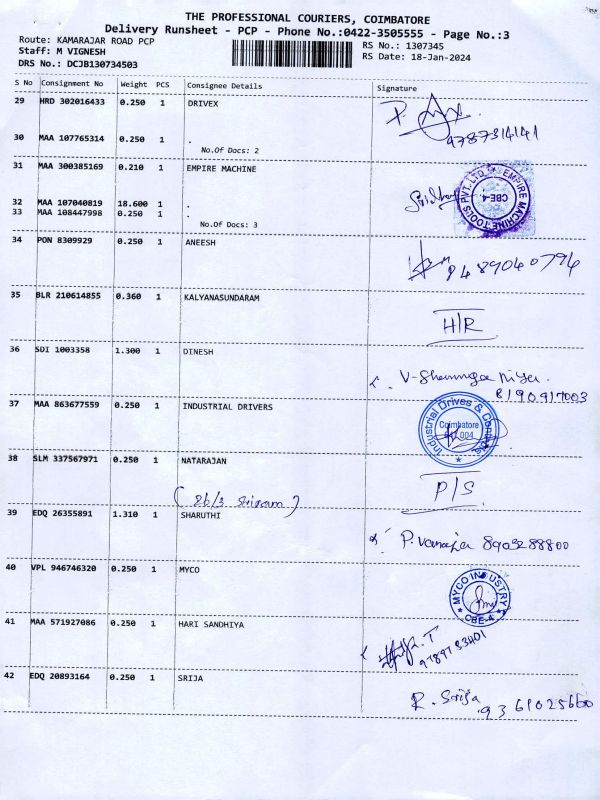 THE PROFESSIONAL COURIERS, COIMBATORE
Delivery Runsheet - PCP - Phone No.:0422-3505555 - Page No.:3
Route: KAMARAJAR ROAD PCP
RS No.: 1307345
Staff: M VIGNESH
RS Date: 18-Jan-2024
DRS No.: DCJB130734503
S No Consignment No Weight PCS Consignee Details Signature
29 HRD 302016433 0.250 1 DRIVEX
30 MAA 107765314 0.250 1 .
No.Of Docs: 2
9787314141
31 MAA 300385169 0.210 1 EMPIRE MACHINE
EMPIRE MACHINE TOOLS PVT. LTD.
CBE-4.
32 MAA 107040819 18.600 1 .
33 MAA 108447998 0.250 1 .
No.Of Docs: 3
34 PON 8309929 0.250 1 ANEESH
9489040794
35 BLR 210614855 0.360 1 KALYANASUNDARAM
H/R
36 SDI 1003358 1.300 1 DINESH
8190917003
37 MAA 863677559 0.250 1 INDUSTRIAL DRIVERS
Industrial Drives & Controls
Coimbatore
38 SLM 337567971 0.250 1 NATARAJAN
P/S
39 EDQ 26355891 1.310 1 SHARUTHI
P. Vanaja 8903288800
40 VPL 946746320 0.250 1 MYCO
MYCO INDUSTRY
CBE-4
41 MAA 571927086 0.250 1 HARI SANDHIYA
9789783401
42 EDQ 20893164 0.250 1 SRIJA
R. Srija
9361025660